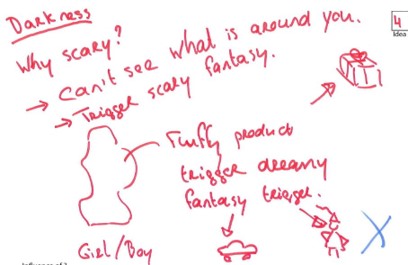 Darkness
4
Idea
Why scary?
→ Can't see what is around you.
→ Trigger scary fantasy.
Fluffy product
trigger dreamy
fantasy trigger.
Girl/Boy